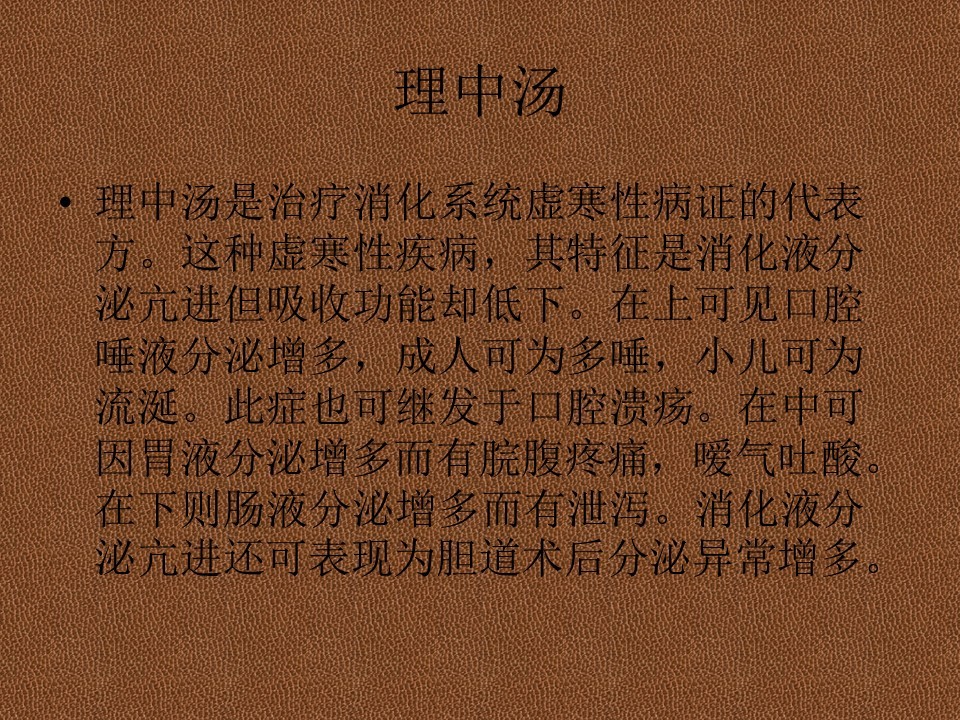 理中汤
• 理中汤是治疗消化系统虚寒性病证的代表
方。这种虚寒性疾病，其特征是消化液分
泌亢进但吸收功能却低下。在上可见口腔
唾液分泌增多，成人可为多唾，小儿可为
流涎。此症也可继发于口腔溃疡。在中可
因胃液分泌增多而有脘腹疼痛，嗳气吐酸。
在下则肠液分泌增多而有泄泻。消化液分
泌亢进还可表现为胆道术后分泌异常增多。